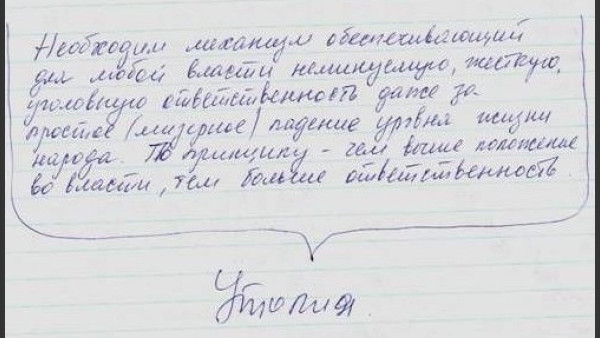 Необходим механизм обеспечивающий
для любой власти неминуемую, жесткую,
уголовную ответственность даже за
простое (мизерное) падение уровня жизни
народа. По принципу - чем выше положение
во власти, тем больше ответственность.
Утопия.